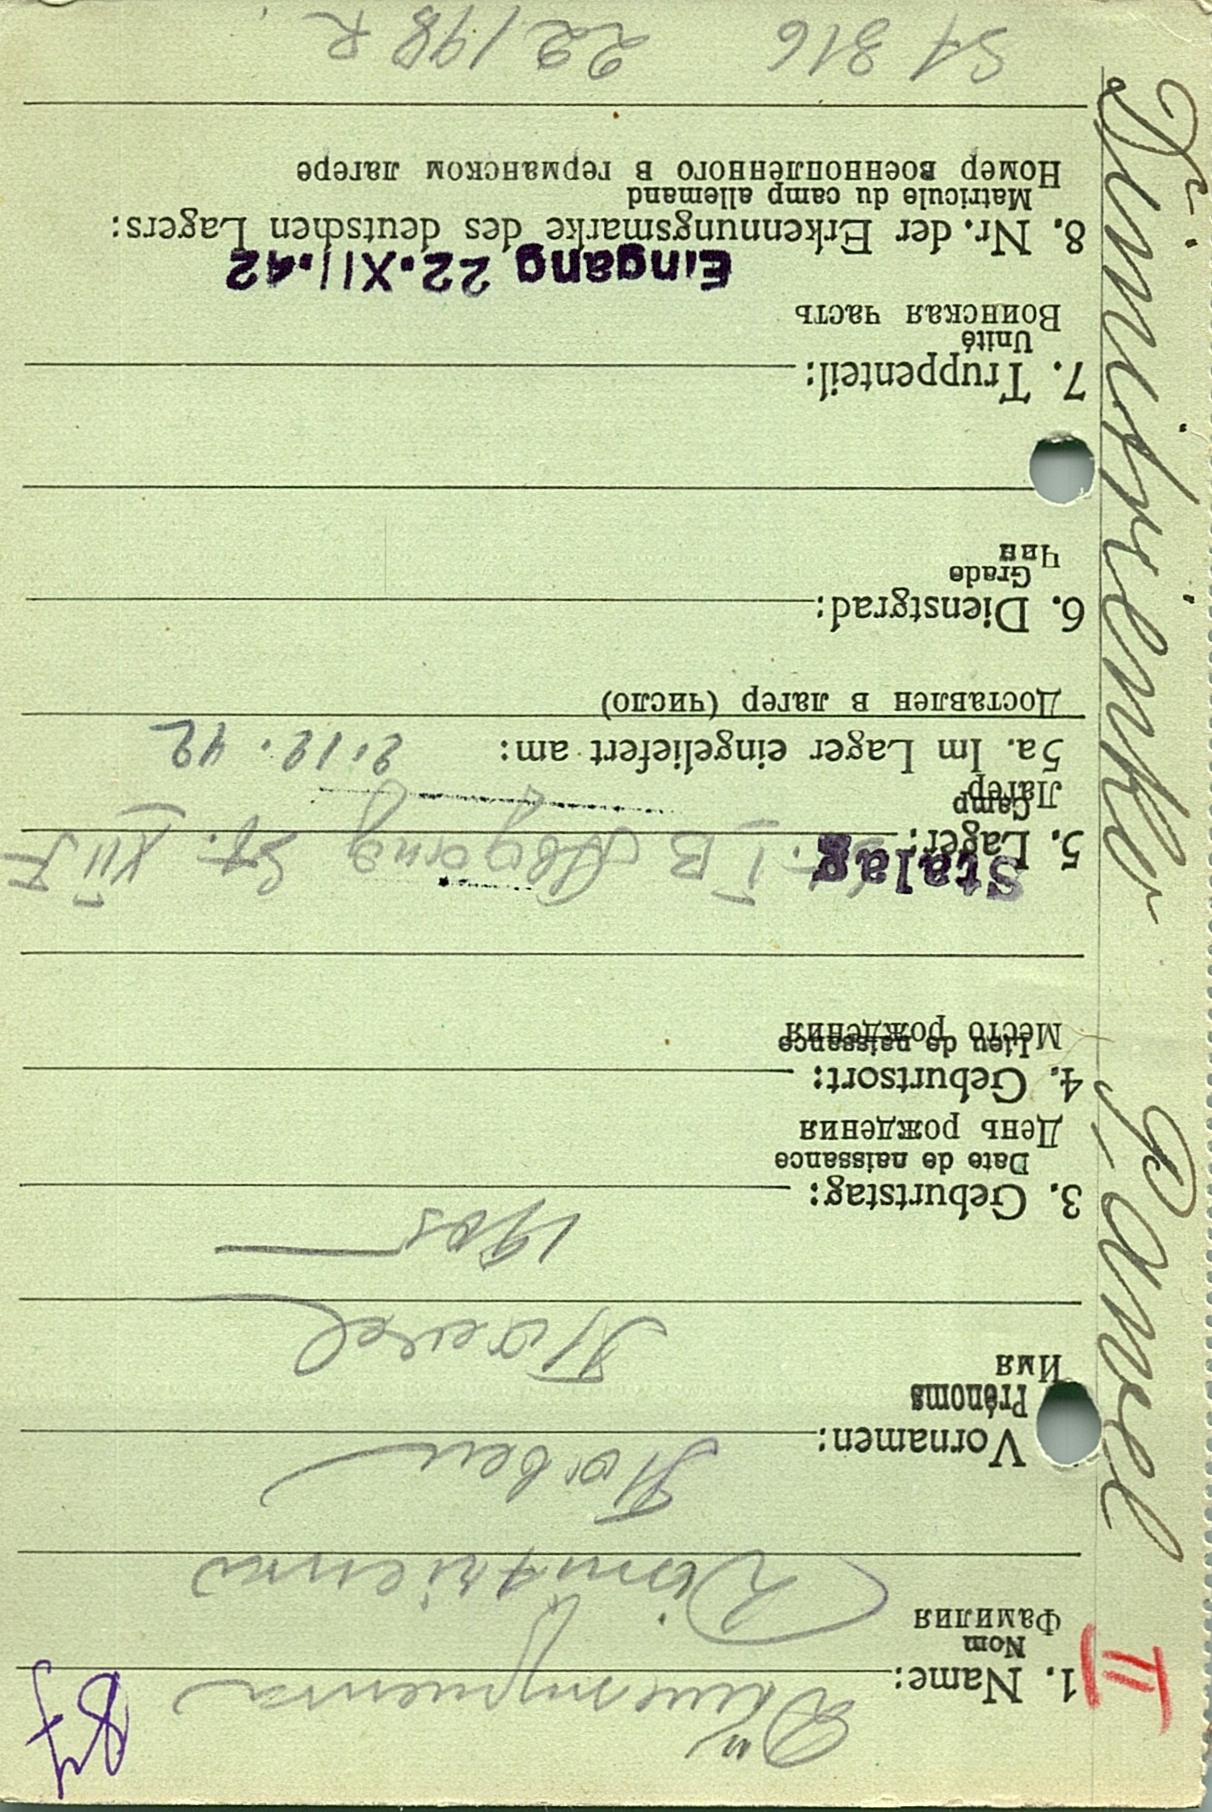 Dimitrienko Pawel
II
1. Name:
Nom
Фамилия
Dimitrienko
Vornamen:
Prénoms
Имя
Павел
Pawel
3. Geburtstag:
Date de naissance
День рождения
1905
4. Geburtsort:
Lieu de naissance
Место рождения
5. Lager:
Camp
Лагерь
Stalag
St. I B Abgang St. XII F
5a. Im Lager eingeliefert am: 2.12.42
Доставлен в лагер (число)
6. Dienstgrad:
Grade
Чин
7. Truppenteil:
Unité
Воинская часть
Eingang 22.XII.42
8. Nr. der Erkennungsmarke des deutschen Lagers:
Matricule du camp allemand
Номер военнопленного в германском лагере
St 316 22198 R